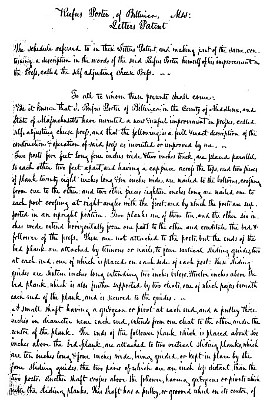 Rufus Porter, of Billerica, Mass:
Letters Patent
The schedule referred to in these Letters Patent and making part of the same, con-
taining a description in the words of the said Rufus Porter himself of his improvement in
the Press, called the Self adjusting cheese Press.
To all to whom these presents shall come:
Be it known that I, Rufus Porter of Billerica in the County of Middlesex, and
State of Massachusetts have invented a new & useful improvement in presses, called
Self adjusting cheese press, and that the following is a full & exact description of the
construction & operation of said press as invented or improved by me.
Two posts four feet long four inches wide & two inches thick, are placed parallel
to each other two feet apart, and having a cap piece across the top, and two pieces
of plank twenty eight inches long & four inches wide, are nailed to the bottom, crossing
from one to the other; and two other pieces eighteen inches long are nailed one to
each post crossing at right-angles with the first and by which the posts are sup-
ported in an upright position. Two planks one of them ten, and the other six in-
ches wide extend horizontally from one post to the other and constitute the bed &
follower of the press. These are not attached to the posts, but the ends of the
bed plank are attached by tenons or nails, to four vertical sliding guides, two
at each end, one of which is placed on each side of each post: these sliding
guides are sixteen inches long extending two inches below, & twelve inches above the
bed plank, which is also further supported by two rods, one of which passes beneath
each end of the plank, and is secured to the guides.
A small shaft having a gudgeon or pivot at each end, and a pulley three
inches in diameter near each end, extends from one post to the other under the
centre of the plank. The ends of the follower plank, which is placed about six
inches above the bed plank, are attached to two vertical sliding planks, which
are ten inches long & four inches wide, being guided, or kept in place by the
four sliding guides the two pairs of which are an inch less distant than the
two posts. Another shaft crosses above the follower, having gudgeons or pivots which
enter the sliding planks. This shaft has a pulley, or grooved wheel on its centre, of